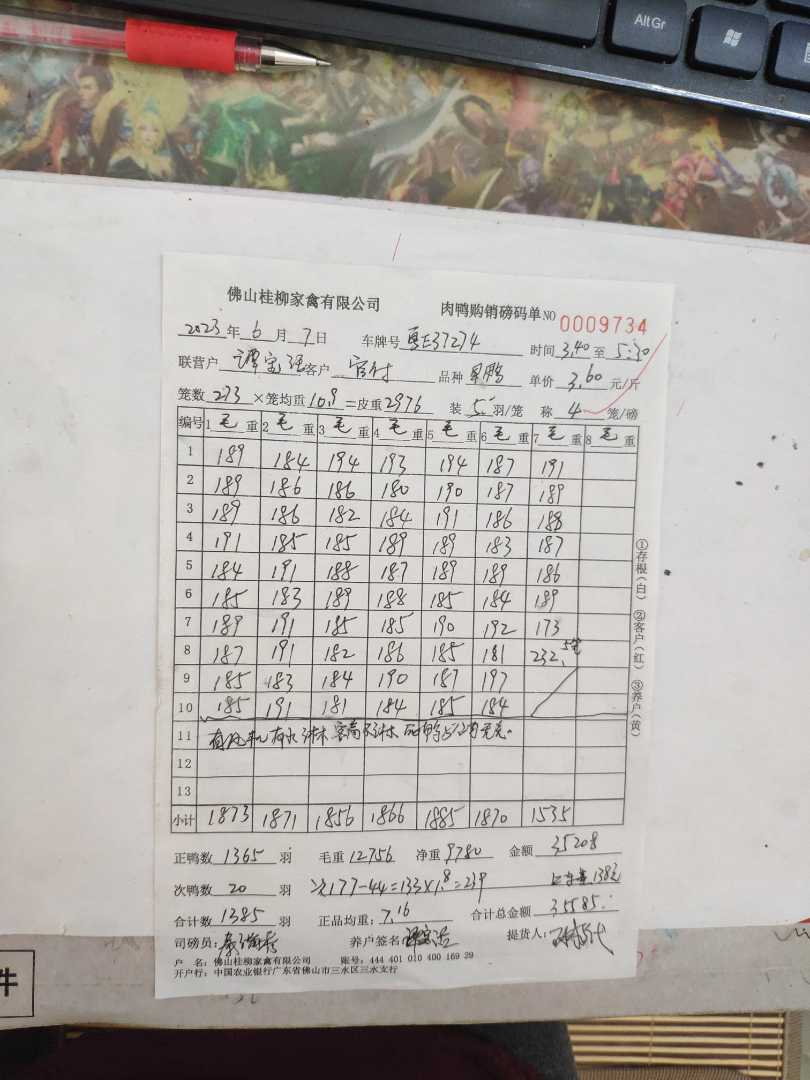 AltGr
佛山桂柳家禽有限公司 肉鸭购销磅码单NO 0009734
2023年6月7日 车牌号粤E37274 时间3.40至5:30
联营户 谭宝强 客户 官村 品种 单价3.60元/斤
笼数273×笼均重10.9=皮重2976 装5羽/笼 称4笼/磅
编号 1毛重 2毛重 3毛重 4毛重 5毛重 6毛重 7毛重 8毛重
1 189 184 194 193 194 187 191
2 189 186 186 180 190 187 189
3 189 186 182 184 191 186 188
4 191 185 185 189 189 183 187
5 184 191 188 187 189 189 186
6 185 183 189 188 185 184 189
7 189 191 185 185 190 192 173
8 187 191 182 186 185 181 232,5笼
9 185 183 184 190 187 197
10 185 191 181 184 185 184
11
12
13
小计 1873 1871 1856 1866 1885 1870 1535
正鸭数1365羽 毛重12756 净重9780 金额35208
次鸭数20羽 次177-44=133×1.8=239 1383
合计数1385羽 正品均重:7.16 合计总金额35585.
司磅员: 养户签名 提货人:
户 名:佛山桂柳家禽有限公司 账号:444 401 010 400 169 39
开户行:中国农业银行广东省佛山市三水区三水支行
①存根(白) ②客户(红) ③养户(黄)
件